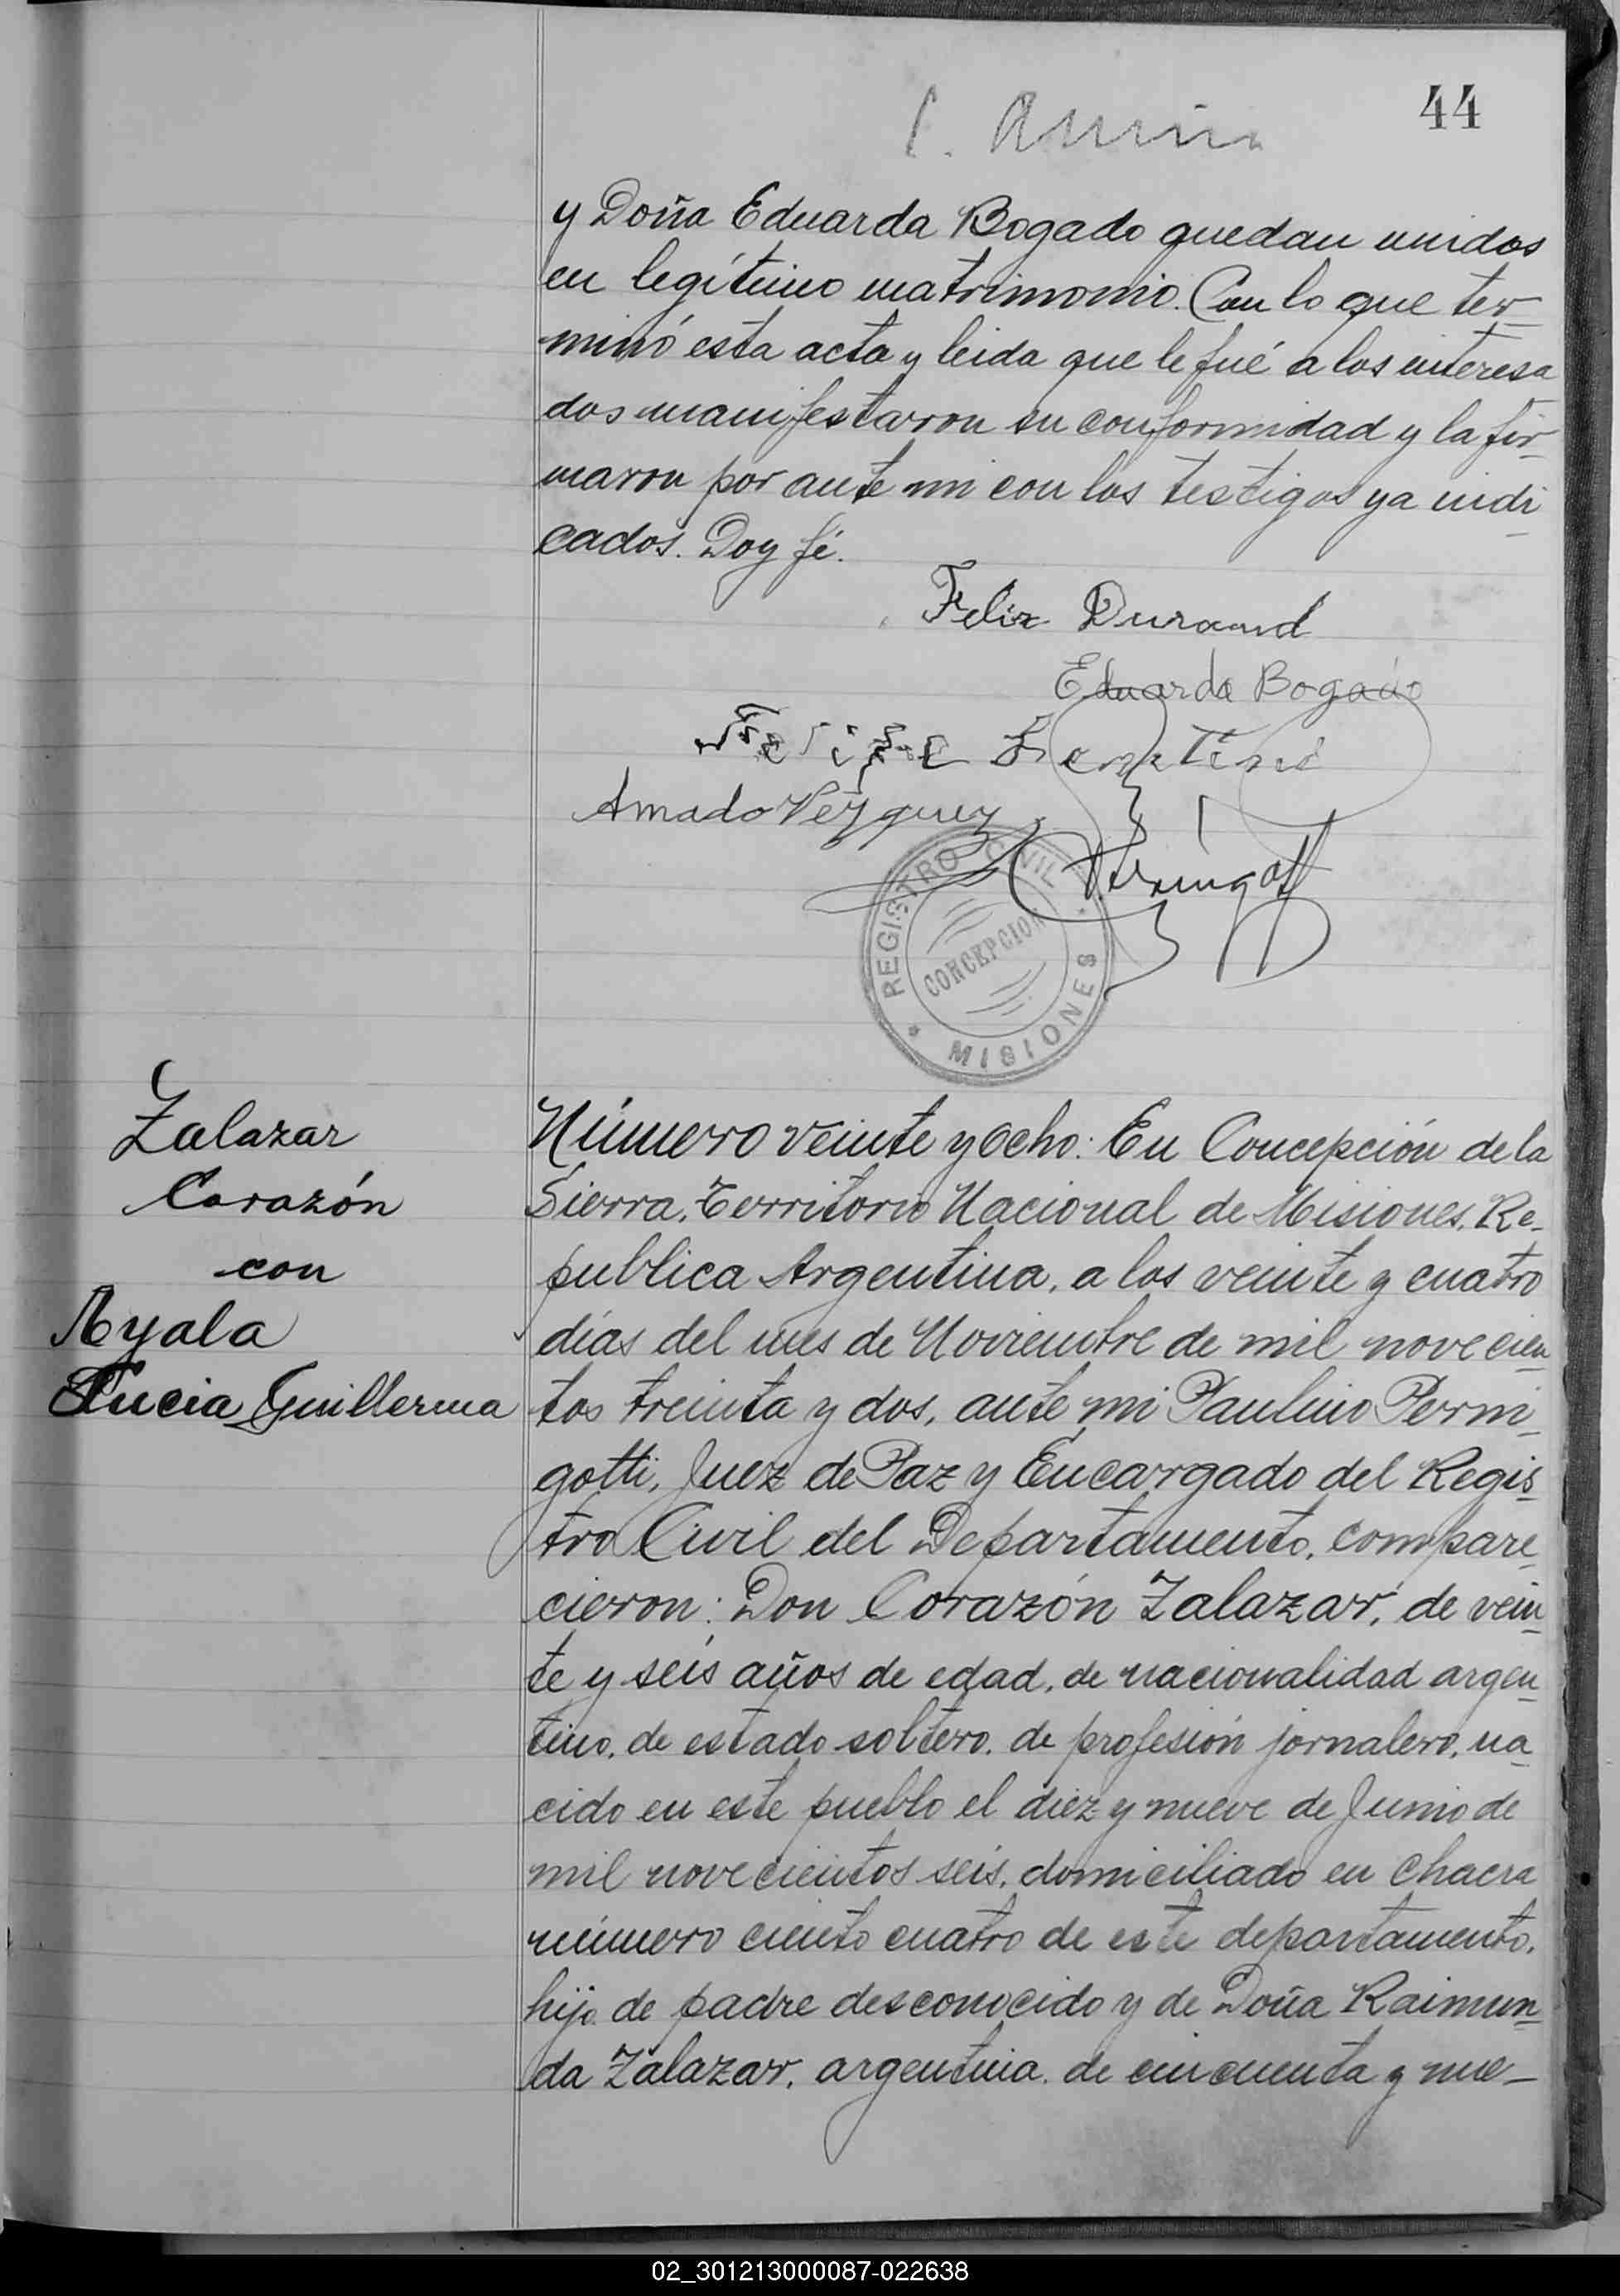 44
y Doña Eduarda Bogado quedan unidos
en legítimo matrimonio. Con lo que ter-
minó esta acta y leida que le fué a los interesa
dos manifestaron su conformidad y la fir-
maron por ante mi con los testigos ya indi-
cados. Doy fé.
Felix Durand
Eduarda Bogado
Amado Vezquez
REGISTRO CIVIL
CONCEPCION
* MISIONES *
Zalazar
Corazón
con
Ayala
Lucia Guillerma
Número veinte y ocho: En Concepción de la
Sierra, Territorio Nacional de Misiones, Re-
publica Argentina, a los veinte y cuatro
días del mes de Noviembre de mil novecien
tos treinta y dos, ante mi Paulino Permi-
gotti, Juez de Paz y Encargado del Regis-
tro Civil del Departamento, compare-
cieron: Don Corazón Zalazar, de vein-
te y seis años de edad, de nacionalidad argen-
tino, de estado soltero, de profesión jornalero, na-
cido en este pueblo el diez y nueve de Junio de
mil novecientos seis, domiciliado en chacra
número ciento cuatro de este departamento,
hijo de padre desconocido y de Doña Raimun-
da Zalazar, argentina, de cincuenta y nue-
02_301213000087-022638